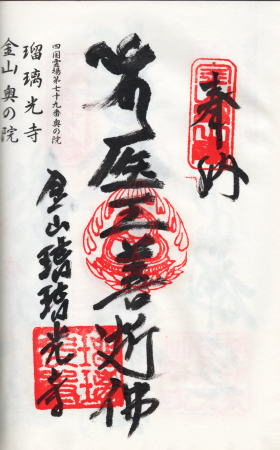 奉納
医王善逝佛
金山瑠璃光寺
四国霊場第七十九番奥の院
瑠璃光寺
金山奥の院